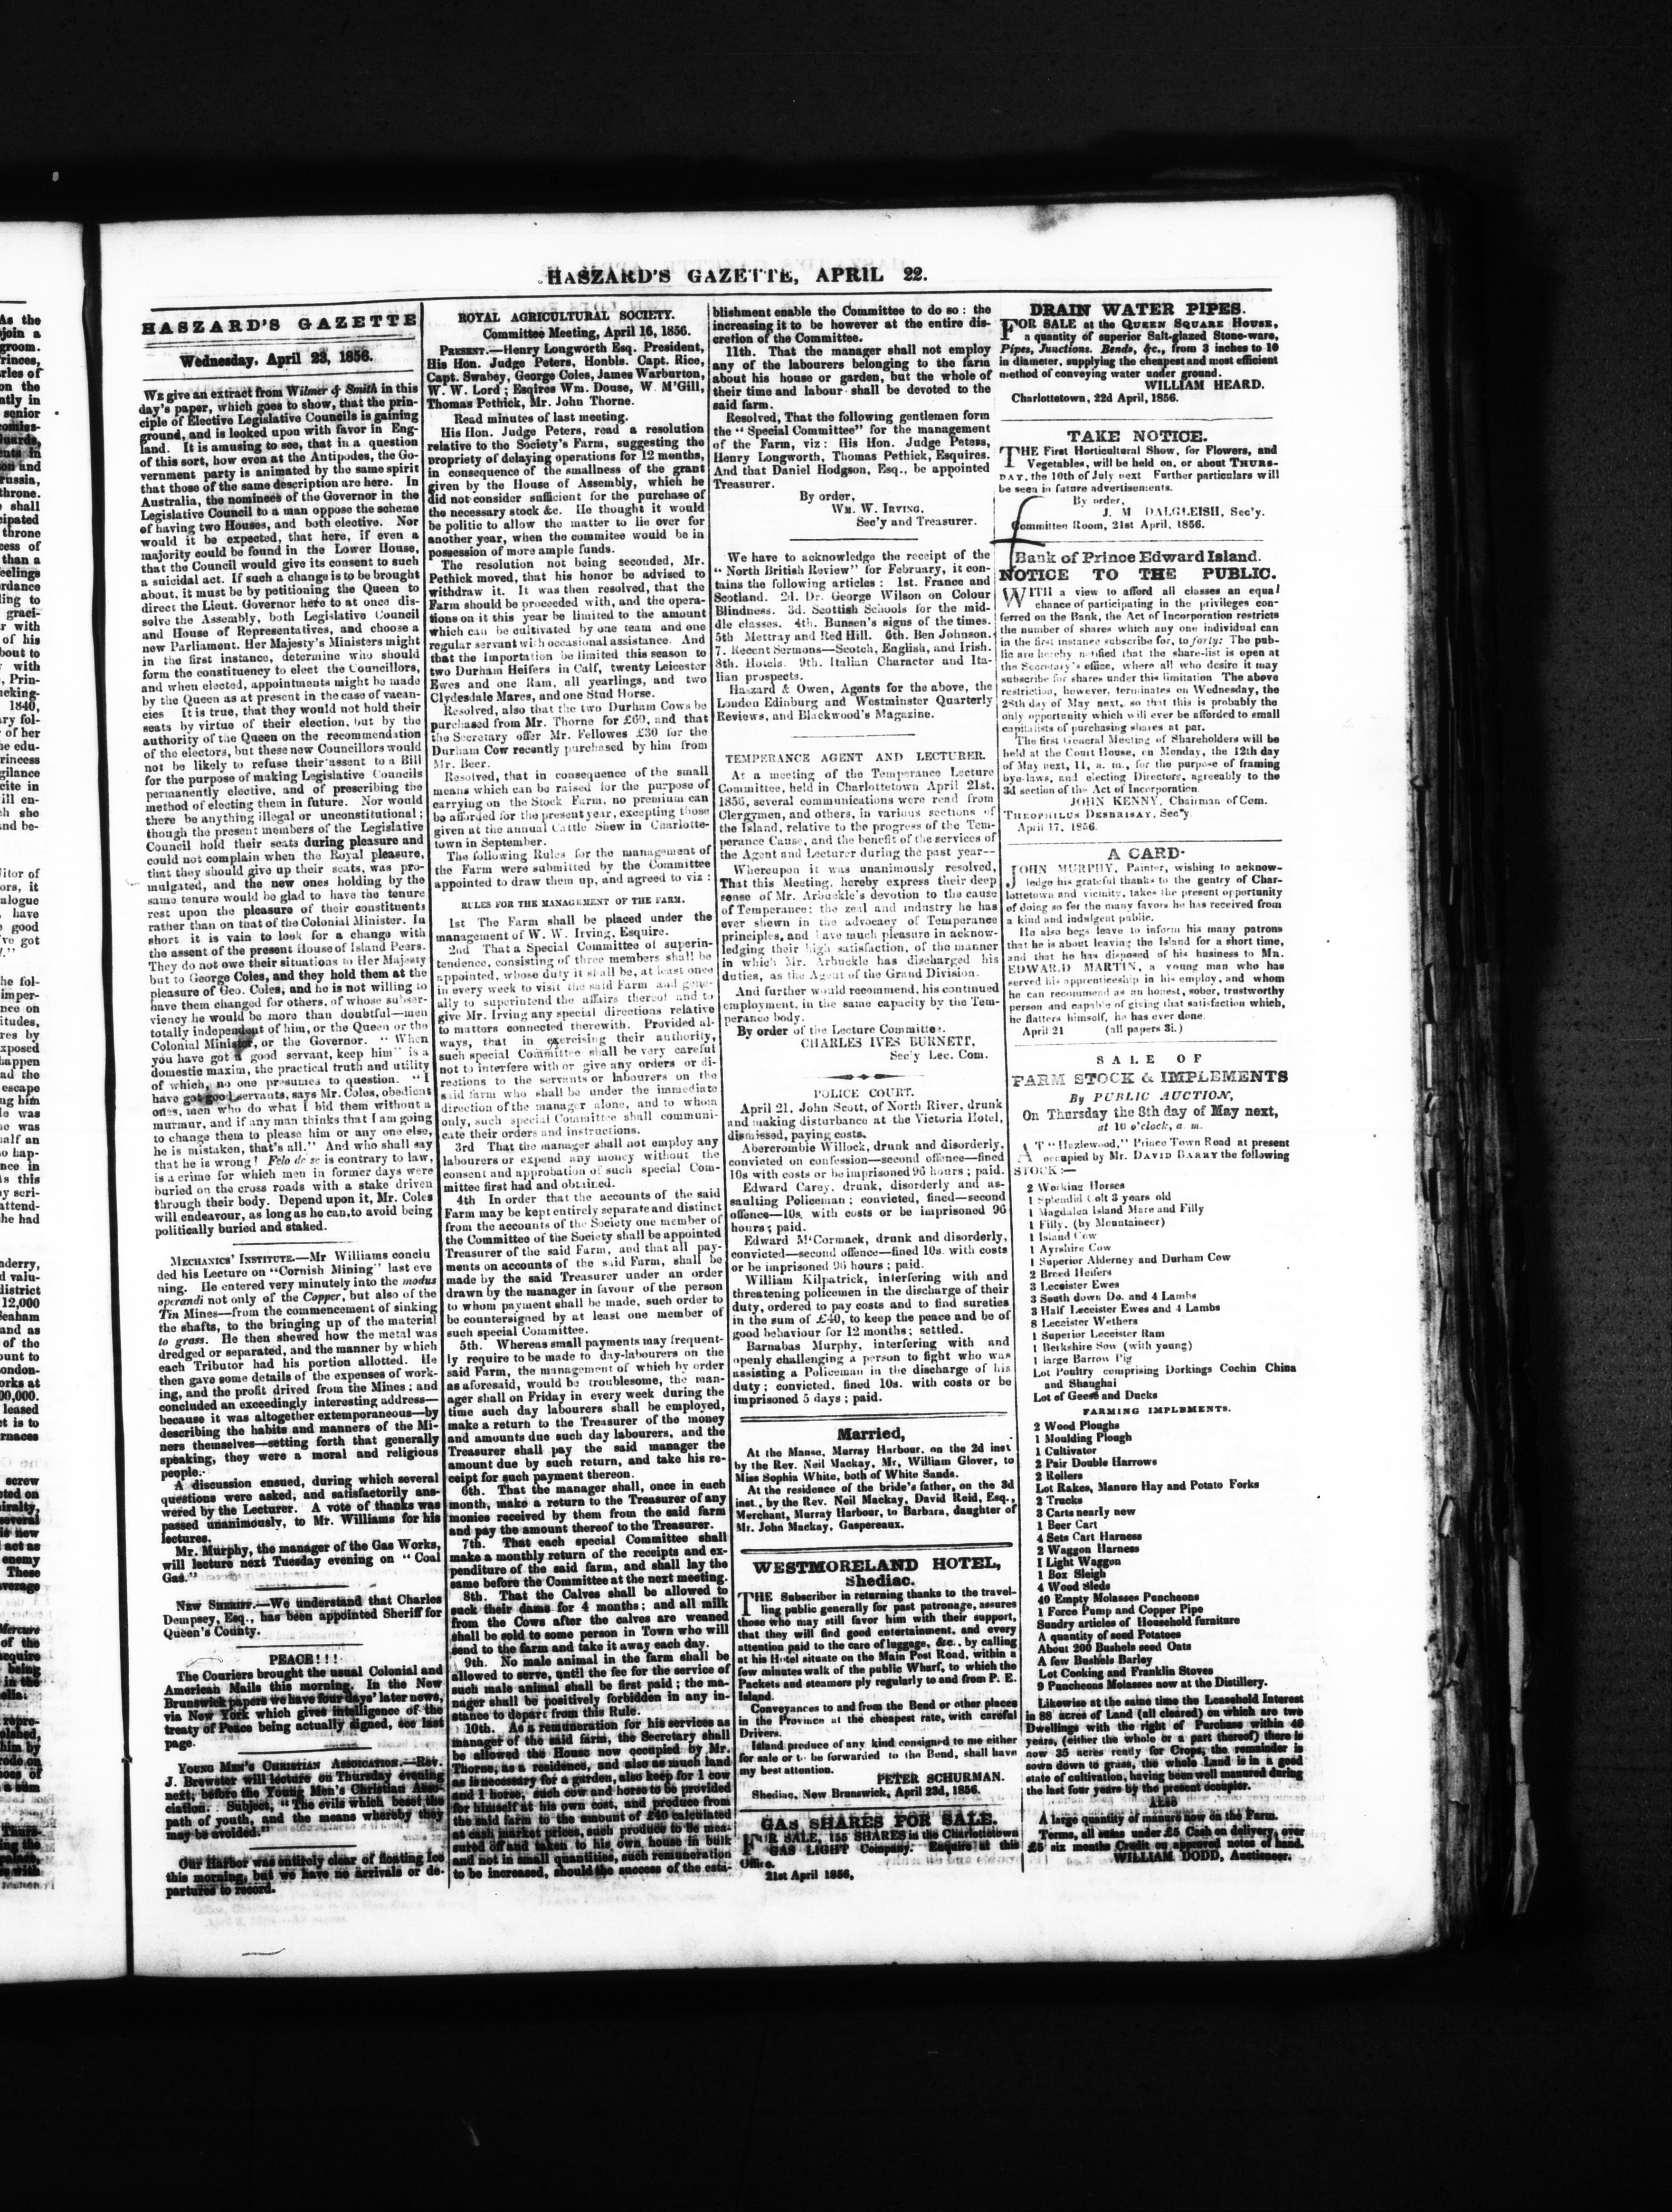 HASZARD'S GAZETTE, APRIL 22.
HASZARD'S GAZETTE
Wednesday, April 23, 1856.
WE give an extract from Wilmer & Smith in this
day's paper, which goes to show, that the prin-
ciple of Elective Legislative Councils is gaining
ground, and is looked upon with favor in Eng-
land. It is amusing to see, that in a question
of this sort, how even at the Antipodes, the Go-
vernment party is animated by the same spirit
that those of the same description are here. In
Australia, the nominees of the Governor in the
Legislative Council to a man oppose the scheme
of having two Houses, and both elective. Nor
would it be expected, that here, if even a
majority could be found in the Lower House,
that the Council would give its consent to such
a suicidal act. If such a change is to be brought
about, it must be by petitioning the Queen to
direct the Lieut. Governor here to at once dis-
solve the Assembly, both Legislative Council
and House of Representatives, and choose a
new Parliament. Her Majesty's Ministers might
in the first instance, determine who should
form the constituency to elect the Councillors,
and when elected, appointments might be made
by the Queen as at present in the case of vacan-
cies It is true, that they would not hold their
seats by virtue of their election, but by the
authority of the Queen on the recommendation
of the electors, but these new Councillors would
not be likely to refuse their assent to a Bill
for the purpose of making Legislative Councils
permanently elective, and of prescribing the
method of electing them in future. Nor would
there be anything illegal or unconstitutional;
though the present members of the Legislative
Council hold their seats during pleasure and
could not complain when the Royal pleasure,
that they should give up their seats, was pro-
mulgated, and the new ones holding by the
same tenure would be glad to have the tenure
rest upon the pleasure of their constituents
rather than on that of the Colonial Minister. In
short it is vain to look for a change with
the assent of the present House of Island Peers.
They do not owe their situations to Her Majesty
but to George Coles, and they hold them at the
pleasure of Geo. Coles, and he is not willing to
have them changed for others, of whose subser-
viency he would be more than doubtful—men
totally independent of him, or the Queen or the
Colonial Minister, or the Governor. "When
you have got a good servant, keep him" is a
domestic maxim, the practical truth and utility
of which, no one presumes to question. "I
have got good servants, says Mr. Coles, obedient
ones, men who do what I bid them without a
murmur, and if any man thinks that I am going
to change them to please him or any one else,
he is mistaken, that's all." And who shall say
that he is wrong? Felo de se is contrary to law,
is a crime for which men in former days were
buried on the cross roads with a stake driven
through their body. Depend upon it, Mr. Coles
will endeavour, as long as he can, to avoid being
politically buried and staked.
MECHANICS' INSTITUTE.—Mr Williams conclu
ded his Lecture on "Cornish Mining" last eve
ning. He entered very minutely into the modus
operandi not only of the Copper, but also of the
Tin Mines—from the commencement of sinking
the shafts, to the bringing up of the material
to grass. He then shewed how the metal was
dredged or separated, and the manner by which
each Tributor had his portion allotted. He
then gave some details of the expenses of work-
ing, and the profit drived from the Mines; and
concluded an exceedingly interesting address—
because it was altogether extemporaneous—by
describing the habits and manners of the Mi-
ners themselves—setting forth that generally
speaking, they were a moral and religious
people.
A discussion ensued, during which several
questions were asked, and satisfactorily ans-
wered by the Lecturer. A vote of thanks was
passed unanimously, to Mr. Williams for his
lectures.
Mr. Murphy, the manager of the Gas Works,
will lecture next Tuesday evening on "Coal
Gas."
NEW SHERIFF.—We understand that Charles
Dempsey, Esq., has been appointed Sheriff for
Queen's County.
PEACE!!!
The Couriers brought the usual Colonial and
American Mails this morning. In the New
Brunswick papers we have four days' later news,
via New York which gives intelligence of the
treaty of Peace being actually signed, see last
page.
YOUNG MEN'S CHRISTIAN ASSOCIATION.—Rev.
J. Brewster will lecture on Thursday evening
next, before the Young Men's Christian Asso-
ciation. Subject, "The evils which beset the
path of youth, and the means whereby they
may be avoided."
Our Harbor was entirely clear of floating Ice
this morning, but we have no arrivals or de-
partures to record.
ROYAL AGRICULTURAL SOCIETY.
Committee Meeting, April 16, 1856.
PRESENT.—Henry Longworth Esq. President,
His Hon. Judge Peters, Honbls. Capt. Rice,
Capt. Swabey, George Coles, James Warburton,
W. W. Lord; Esqires Wm. Douse, W. M'Gill,
Thomas Pethick, Mr. John Thorne.
Read minutes of last meeting.
His Hon. Judge Peters, read a resolution
relative to the Society's Farm, suggesting the
propriety of delaying operations for 12 months,
in consequence of the smallness of the grant
given by the House of Assembly, which he
did not consider sufficient for the purchase of
the necessary stock &c. He thought it would
be politic to allow the matter to lie over for
another year, when the commitee would be in
possession of more ample funds.
The resolution not being seconded, Mr.
Pethick moved, that his honor be advised to
withdraw it. It was then resolved, that the
Farm should be proceeded with, and the opera-
tions on it this year be limited to the amount
which can be cultivated by one team and one
regular servant with occasional assistance. And
that the Importation be limited this season to
two Durham Heifers in Calf, twenty Leicester
Ewes and one Ram, all yearlings, and two
Clydesdale Mares, and one Stud Horse.
Resolved, also that the two Durham Cows be
purchased from Mr. Thorne for £60, and that
the Secretary offer Mr. Fellowes £30 for the
Durham Cow recently purchased by him from
Mr. Beer.
Resolved, that in consequence of the small
means which can be raised for the purpose of
carrying on the Stock Farm, no premium can
be afforded for the present year, excepting those
given at the annual Cattle Shew in Charlotte-
town in September.
The following Rules for the management of
the Farm were submitted by the Committee
appointed to draw them up, and agreed to viz:
RULES FOR THE MANAGEMENT OF THE FARM.
1st The Farm shall be placed under the
management of W. W. Irving, Esquire.
2nd That a Special Committee of superin-
tendence, consisting of three members shall be
appointed, whose duty it shall be, at least once
in every week to visit the said Farm and gene-
ally to superintend the affairs thereof and to
give Mr. Irving any special directions relative
to matters connected therewith. Provided al-
ways, that in exercising their authority,
such special Committee shall be very careful
not to interfere with or give any orders or di-
rections to the servants or labourers on the
said farm who shall be under the immediate
direction of the manager alone, and to whom
only, such special Committee shall communi-
cate their orders and instructions.
3rd That the manager shall not employ any
labourers or expend any money without the
consent and approbation of such special Com-
mittee first had and obtained.
4th In order that the accounts of the said
Farm may be kept entirely separate and distinct
from the accounts of the Society one member of
the Committee of the Society shall be appointed
Treasurer of the said Farm, and that all pay-
ments on accounts of the said Farm, shall be
made by the said Treasurer under an order
drawn by the manager in favour of the person
to whom payment shall be made, such order to
be countersigned by at least one member of
such special Committee.
5th. Whereas small payments may frequent-
ly require to be made to day-labourers on the
said Farm, the management of which by order
as aforesaid, would be troublesome, the man-
ager shall on Friday in every week during the
time such day labourers shall be employed,
make a return to the Treasurer of the money
and amounts due such day labourers, and the
Treasurer shall pay the said manager the
amount due by such return, and take his re-
ceipt for such payment thereon.
6th. That the manager shall, once in each
month, make a return to the Treasurer of any
monies received by them from the said farm
and pay the amount thereof to the Treasurer.
7th. That each special Committee shall
make a monthly return of the receipts and ex-
penditure of the said farm, and shall lay the
same before the Committee at the next meeting.
8th. That the Calves shall be allowed to
suck their dams for 4 months; and all milk
from the Cows after the calves are weaned
shall be sold to some person in Town who will
send to the farm and take it away each day.
9th. No male animal in the farm shall be
allowed to serve, until the fee for the service of
such male animal shall be first paid; the ma-
nager shall be positively forbidden in any in-
stance to depart from this Rule.
10th. As a remuneration for his services as
manager of the said farm, the Secretary shall
be allowed the House now occupied by Mr.
Thorne, as a residence, and also as much land
as is necessary for a garden, also keep for 1 cow
and 1 horse, such cow and horse to be provided
for himself at his own cost, and produce from
the said farm to the amount of £40 calculated
at cash market prices, such produce to be mea-
sured off and taken to his own house in bulk
and not in small quantities, such remuneration
to be increased, should the success of the esta-
blishment enable the Committee to do so: the
increasing it to be however at the entire dis-
cretion of the Committee.
11th. That the manager shall not employ
any of the labourers belonging to the farm
about his house or garden, but the whole of
their time and labour shall be devoted to the
said farm.
Resolved, That the following gentlemen form
the "Special Committee" for the management
of the Farm, viz: His Hon. Judge Peters,
Henry Longworth, Thomas Pethick, Esquires.
And that Daniel Hodgson, Esq., be appointed
Treasurer.
By order,
WM. W. IRVING,
Sec'y and Treasurer.
We have to acknowledge the receipt of the
"North British Review" for February, it con-
tains the following articles: 1st. France and
Scotland. 2d. Dr. George Wilson on Colour
Blindness. 3d. Scottish Schools for the mid-
dle classes. 4th. Bunsen's signs of the times.
5th Mettray and Red Hill. 6th. Ben Johnson.
7. Recent Sermons—Scotch, English, and Irish.
8th. Hotels. 9th. Italian Character and Ita-
lian prospects.
Haszard & Owen, Agents for the above, the
London Edinburg and Westminster Quarterly
Reviews, and Blackwood's Magazine.
TEMPERANCE AGENT AND LECTURER.
At a meeting of the Temperance Lecture
Committee, held in Charlottetown April 21st,
1856, several communications were read from
Clergymen, and others, in various sections of
the Island, relative to the progress of the Tem-
perance Cause, and the benefit of the services of
the Agent and Lecturer during the past year—
Whereupon it was unanimously resolved,
That this Meeting, hereby express their deep
sense of Mr. Arbuckle's devotion to the cause
of Temperance; the zeal and industry he has
ever shewn in the advocacy of Temperance
principles, and have much pleasure in acknow-
ledging their high satisfaction, of the manner
in which Mr. Arbuckle has discharged his
duties, as the Agent of the Grand Division.
And further would recommend, his continued
employment, in the same capacity by the Tem-
perance body.
By order of the Lecture Committee.
CHARLES IVES BURNETT,
Sec'y Lec. Com.
POLICE COURT.
April 21. John Scott, of North River, drunk
and making disturbance at the Victoria Hotel,
dismissed, paying costs.
Abercrombie Willock, drunk and disorderly,
convicted on confession—second offence—fined
10s with costs or be imprisoned 96 hours; paid.
Edward Carey, drunk, disorderly and as-
saulting Policeman; convicted, fined—second
offence—10s. with costs or be imprisoned 96
hours; paid.
Edward M'Cormack, drunk and disorderly,
convicted—second offence—fined 10s. with costs
or be imprisoned 96 hours; paid.
William Kilpatrick, interfering with and
threatening policemen in the discharge of their
duty, ordered to pay costs and to find sureties
in the sum of £40, to keep the peace and be of
good behaviour for 12 months; settled.
Barnabas Murphy, interfering with and
openly challenging a person to fight who was
assisting a Policeman in the discharge of his
duty; convicted, fined 10s. with costs or be
imprisoned 5 days; paid.
Married,
At the Manse, Murray Harbour, on the 2d inst
by the Rev. Neil Mackay, Mr, William Glover, to
Miss Sophia White, both of White Sands.
At the residence of the bride's father, on the 3d
inst., by the Rev. Neil Mackay, David Reid, Esq.,
Merchant, Murray Harbour, to Barbara, daughter of
Mr. John Mackay, Gaspereaux.
WESTMORELAND HOTEL,
Shediac.
THE Subscriber in returning thanks to the travel-
ling public generally for past patronage, assures
those who may still favor him with their support,
that they will find good entertainment, and every
attention paid to the care of luggage, &c., by calling
at his Hotel situate on the Main Post Road, within a
few minutes walk of the public Wharf, to which the
Packets and steamers ply regularly to and from P. E.
Island.
Conveyances to and from the Bend or other places
in the Province at the cheapest rate, with careful
Drivers.
Island produce of any kind consigned to me either
for sale or to be forwarded to the Bend, shall have
my best attention.
PETER SCHURMAN.
Shediac, New Brunswick, April 23d, 1856.
GAS SHARES FOR SALE.
FOR SALE, 155 SHARES in the Charlottetown
GAS LIGHT Company. Enquire at this
Office.
21st April 1856,
DRAIN WATER PIPES.
FOR SALE at the QUEEN SQUARE HOUSE,
a quantity of superior Salt-glazed Stone-ware,
Pipes, Junctions. Bends, &c., from 3 inches to 10
in diameter, supplying the cheapest and most efficient
method of conveying water under ground.
WILLIAM HEARD.
Charlottetown, 22d April, 1856.
TAKE NOTICE.
THE First Horticultural Show, for Flowers, and
Vegetables, will be held on, or about THURS-
DAY, the 10th of July next Further particulars will
be seen in future advertisements.
By order,
J. M DALGLEISH, Sec'y.
Committee Room, 21st April, 1856.
Bank of Prince Edward Island.
NOTICE TO THE PUBLIC.
WITH a view to afford all classes an equal
chance of participating in the privileges con-
ferred on the Bank, the Act of Incorporation restricts
the number of shares which any one individual can
in the first instance subscribe for, to forty: The pub-
lic are hereby notified that the share-list is open at
the Secretary's office, where all who desire it may
subscribe for shares under this limitation The above
restriction, however, terminates on Wednesday, the
28th day of May next, so that this is probably the
only opportunity which will ever be afforded to small
capitalists of purchasing shares at par.
The first General Meeting of Shareholders will be
held at the Court House, on Monday, the 12th day
of May next, 11, a. m., for the purpose of framing
bye-laws, and electing Directors, agreeably to the
3d section of the Act of Incorporation.
JOHN KENNY, Chairman of Com.
THEOPHILUS DESBRISAY, Sec'y.
April 17, 1856.
A CARD·
JOHN MURPHY, Painter, wishing to acknow-
ledge his grateful thanks to the gentry of Char-
lottetown and vicinity, takes the present opportunity
of doing so for the many favors he has received from
a kind and indulgent public.
He also begs leave to inform his many patrons
that he is about leaving the Island for a short time,
and that he has disposed of his business to MR.
EDWARD MARTIN, a young man who has
served his apprenticeship in his employ, and whom
he can recommend as an honest, sober, trustworthy
person and capable of giving that satisfaction which,
he flatters himself, he has ever done.
April 21 (all papers 3i.)
SALE OF
FARM STOCK & IMPLEMENTS
By PUBLIC AUCTION,
On Thursday the 8th day of May next,
at 10 o'clock, a. m.
AT "Hazlewood," Prince Town Road at present
occupied by Mr. DAVID BARRY the following
STOCK:—
2 Working Horses
1 Splendid Colt 3 years old
1 Magdalen Island Mare and Filly
1 Filly, (by Mountaineer)
1 Island Cow
1 Ayrshire Cow
1 Superior Alderney and Durham Cow
2 Breed Heifers
3 Leceister Ewes
3 South down Do. and 4 Lambs
3 Half Leceister Ewes and 4 Lambs
8 Leceister Wethers
1 Superior Leceister Ram
1 Berkshire Sow (with young)
1 large Barrow Pig
Lot Poultry comprising Dorkings Cochin China
and Shanghai
Lot of Geese and Ducks
FARMING IMPLMENTS.
2 Wood Ploughs
1 Moulding Plough
1 Cultivator
2 Pair Double Harrows
2 Rollers
Lot Rakes, Manure Hay and Potato Forks
2 Trucks
3 Carts nearly new
1 Beer Cart
4 Sets Cart Harness
2 Waggon Harness
1 Light Waggon
1 Box Sleigh
4 Wood Sleds
40 Empty Molasses Puncheons
1 Force Pump and Copper Pipe
Sundry articles of Household furniture
A quantity of seed Potatoes
About 200 Bushels seed Oats
A few Bushels Barley
Lot Cooking and Franklin Stoves
9 Puncheons Molasses now at the Distillery.
Likewise at the same time the Leasehold Interest
in 88 acres of Land (all cleared) on which are two
Dwellings with the right of Purchase within 40
years, (either the whole or a part thereof) there is
now 35 acres ready for Crops, the remainder in
sown down to grass, the whole Land is in a good
state of cultivation, having been well manured during
the last four years by the present occupier.
ALSO
A large quantity of manure now on the Farm.
Terms, all sums under £5 Cash on delivery, over
£5 six months Credit on approved notes of hand.
WILLIAM DODD, Auctioneer.